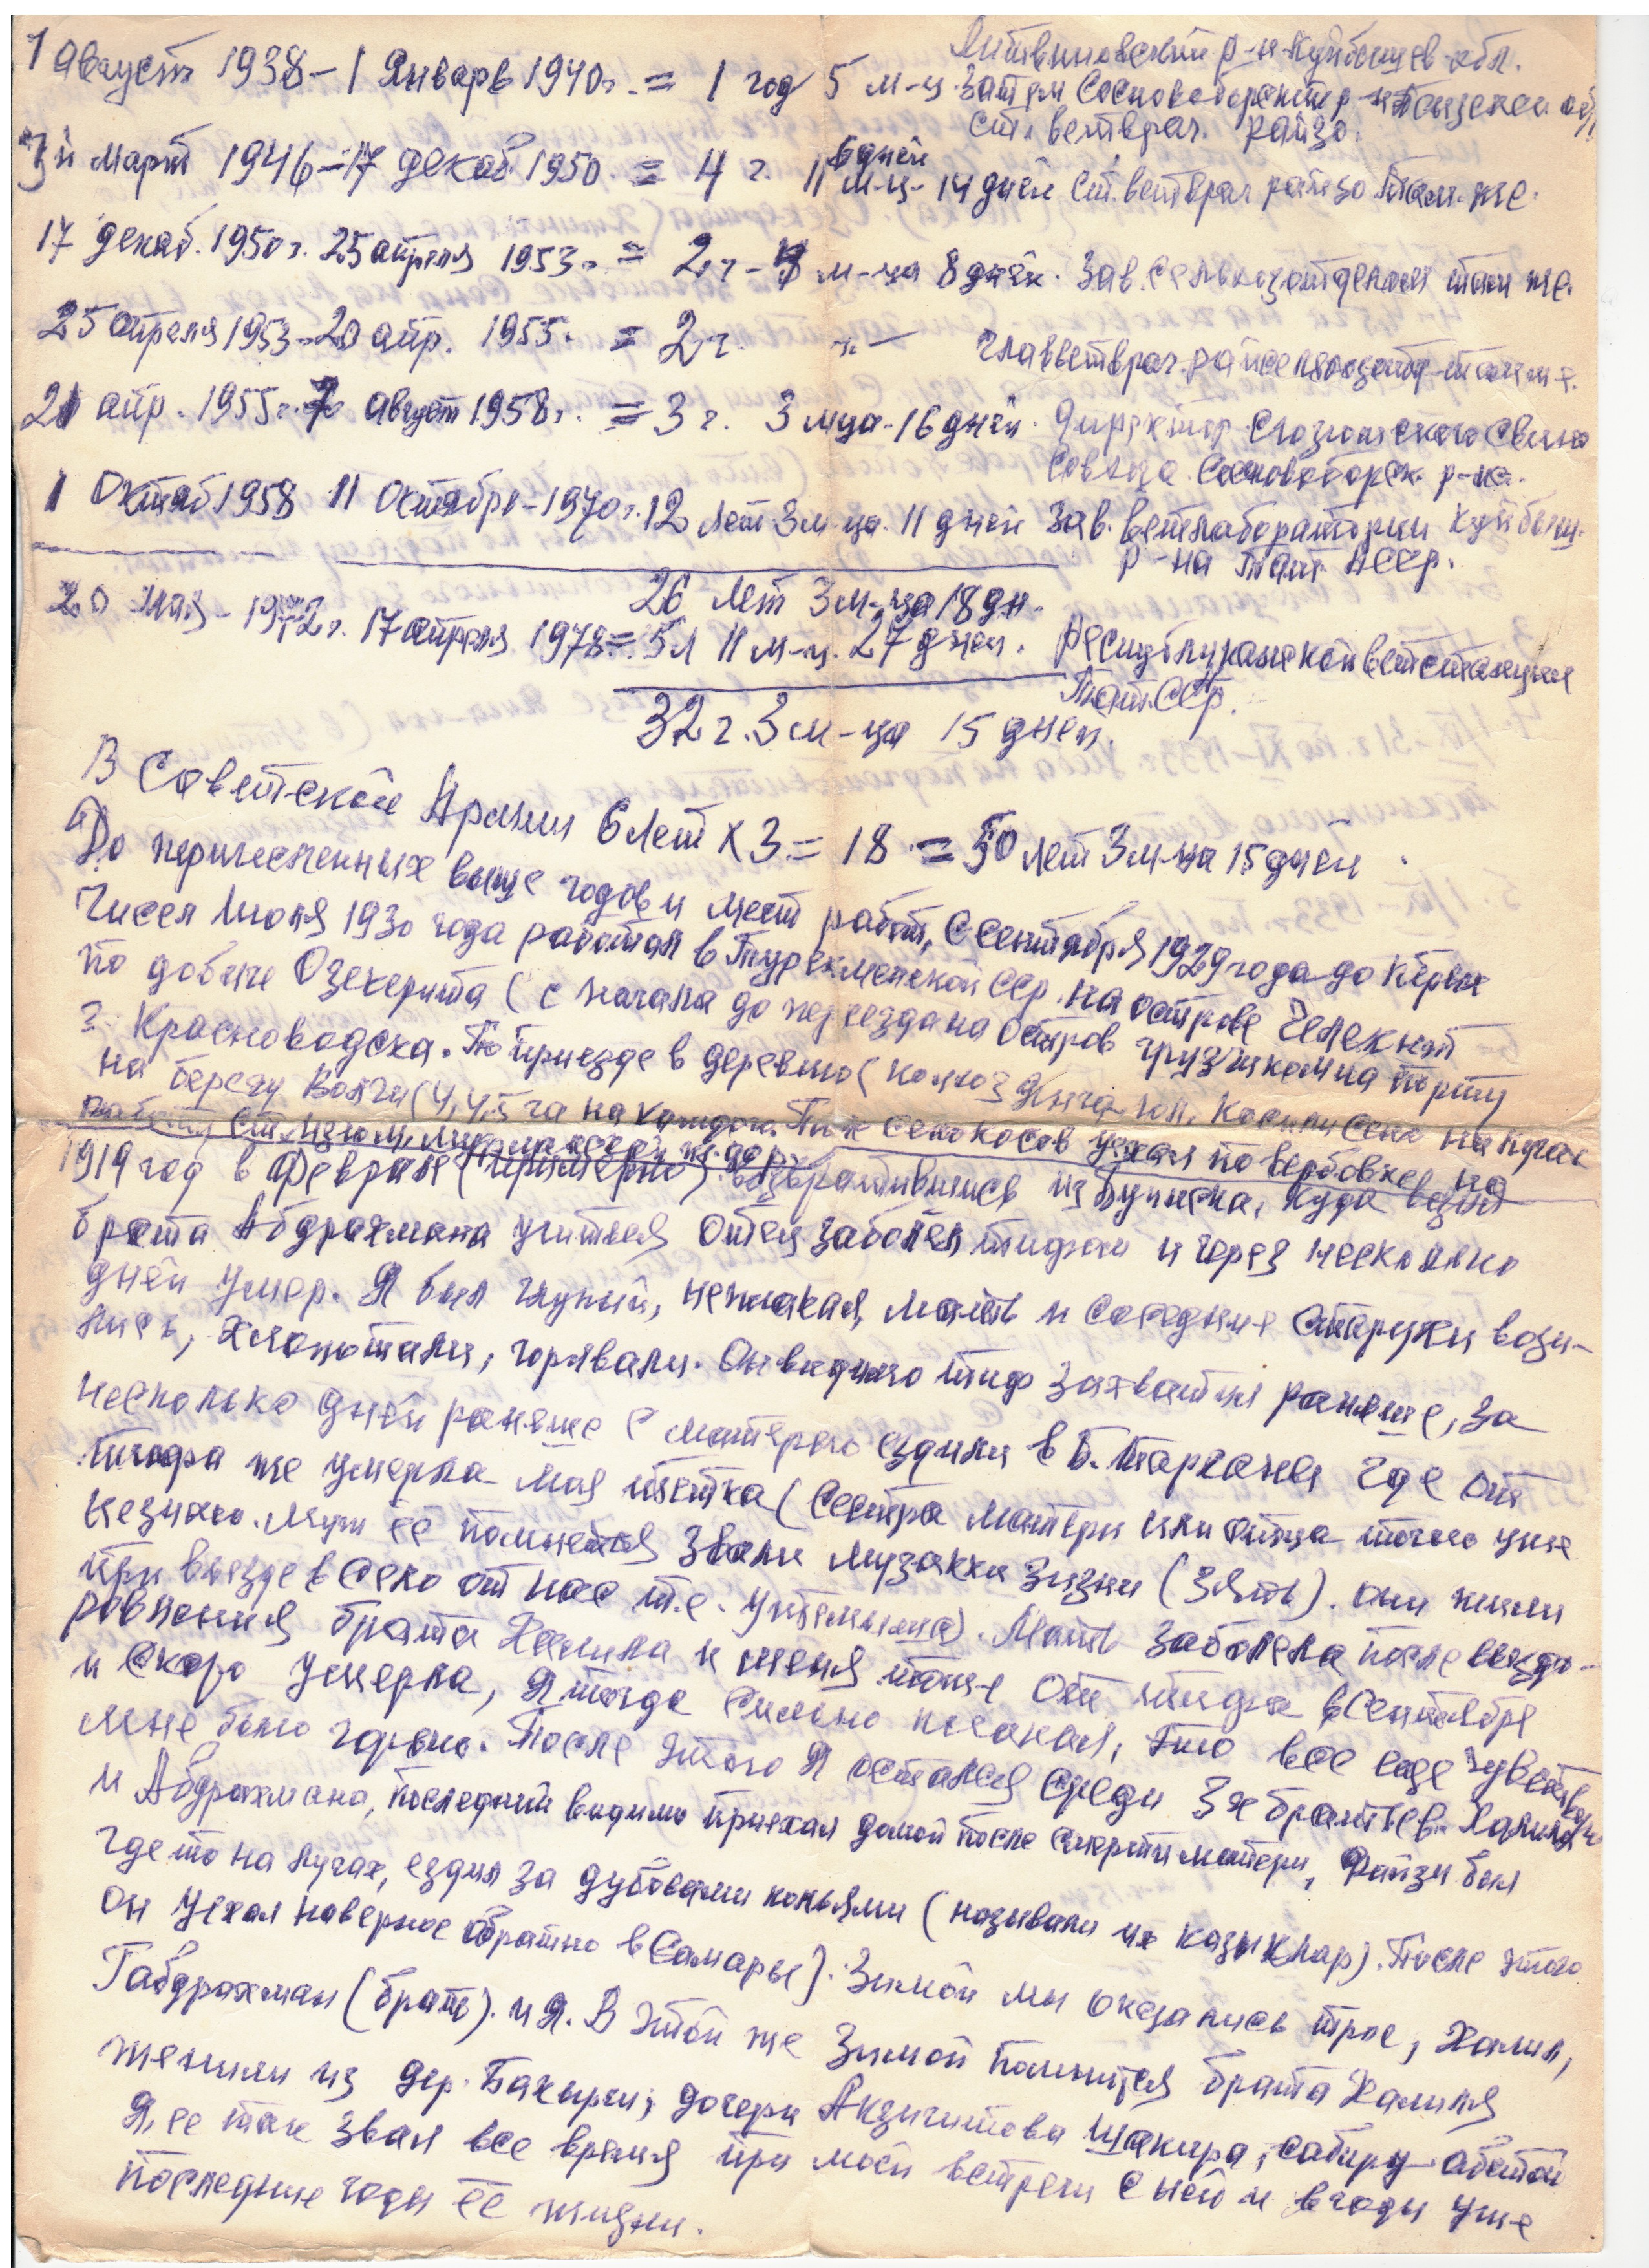 1 Август 1938 – 1 Январь 1940г. = 1 год 5 м-ц. Литвиновский р-н Куйбышев. обл.
Затем Сосновоборский р-н Пензенск. обл.
ст. ветврач. Райзо.
3й Март 1946 – 17 декаб. 1950 = 4 г. 11 м-ц. 14 дней ст. ветврач райзо там-же.
6 дней
17 декаб. 1950г. 25 апреля 1953г. = 2 г. м-ца 8 дней. Зав. сельхозотделом там же.
25 апреля 1953 – 20 апр. 1955. = 2 г. –"– главветврач. там ж.
21 апр. 1955г. 7 август 1958г. = 3 г. 3 м-ца. 16 дней. Директор свино
совхоза Сосновоборск. р-на.
1 Октяб 1958 11 Октября – 1970г. 12 лет 3 м-ца. 11 дней Зав. ветлаборатории Куйбыш.
р-на Тат. АССР.
26 лет 3 м-ца 18 дн.
20 мая – 1972г. 17 апреля 1978 = 5 л 11 м-ц. 27 дней. Республиканской ветстанции
Тат. ССР.
32 г. 3 м-ца 15 дней.
В Советской Армии 6 лет х 3 = 18 = 50 лет 3 м-ца 15 дней.
До перичесленных выше годов и мест работ, с сентября 1929 года до первых
чисел Июля 1930 года работал в Туркменской ССР. на острове Челекнят
по добыче Озекерита (с начала до переезда на остров грузчиком на порту
г. Красноводска. По приезде в деревню (колхоз косили сено на лугах
на берегу Волги (4, 4,5 га на каждого. После сенокосов уехал по вербовке на
работу
1919 год в феврале (примерно) возвратившись из Буинска, куда возил
брата Абдрахмана учиться отец заболел тифом и через несколько
дней умер. Я был глупый, не плакал, мать и соседние старухи вози-
лись, хлопотали, горевали. Он видимо тиф захватил раньше, за
несколько дней раньше с матерью ездили в Б. Тарханы где от
тифа же умерла моя тётка (сестра матери или отца точно уже
не знаю. Муж её помнется звали Музакки Зизни (зять). они жили
при въезде в село от нас т.е. Утямыша). Мать заболела после выздо-
ровления брата Халила и меня тоже от тифа в сентябре
и скоро умерла, я тогда сильно плакал, что все еще чувствую
мне было горько. После этого я остался среди 3х братьев Халила
и Абдрахмана, последний видимо приехал домой после смерти матери, Файзи был
где то на лугах, ездил за дубовыми кольями (называли их казыклар). После этого
он уехал наверное обратно в Самары). Зимой мы оказались трое, Халил,
Габдрахман (брать). и Я. В этой же зимой помнится брата Халиля
женили из дер. Бакырчи, дочери Акзигитова Шакира, Сабиру абыстай
Я, ее так звал все время при моей встречи с ней и в годы уже
последние годы её жизни.